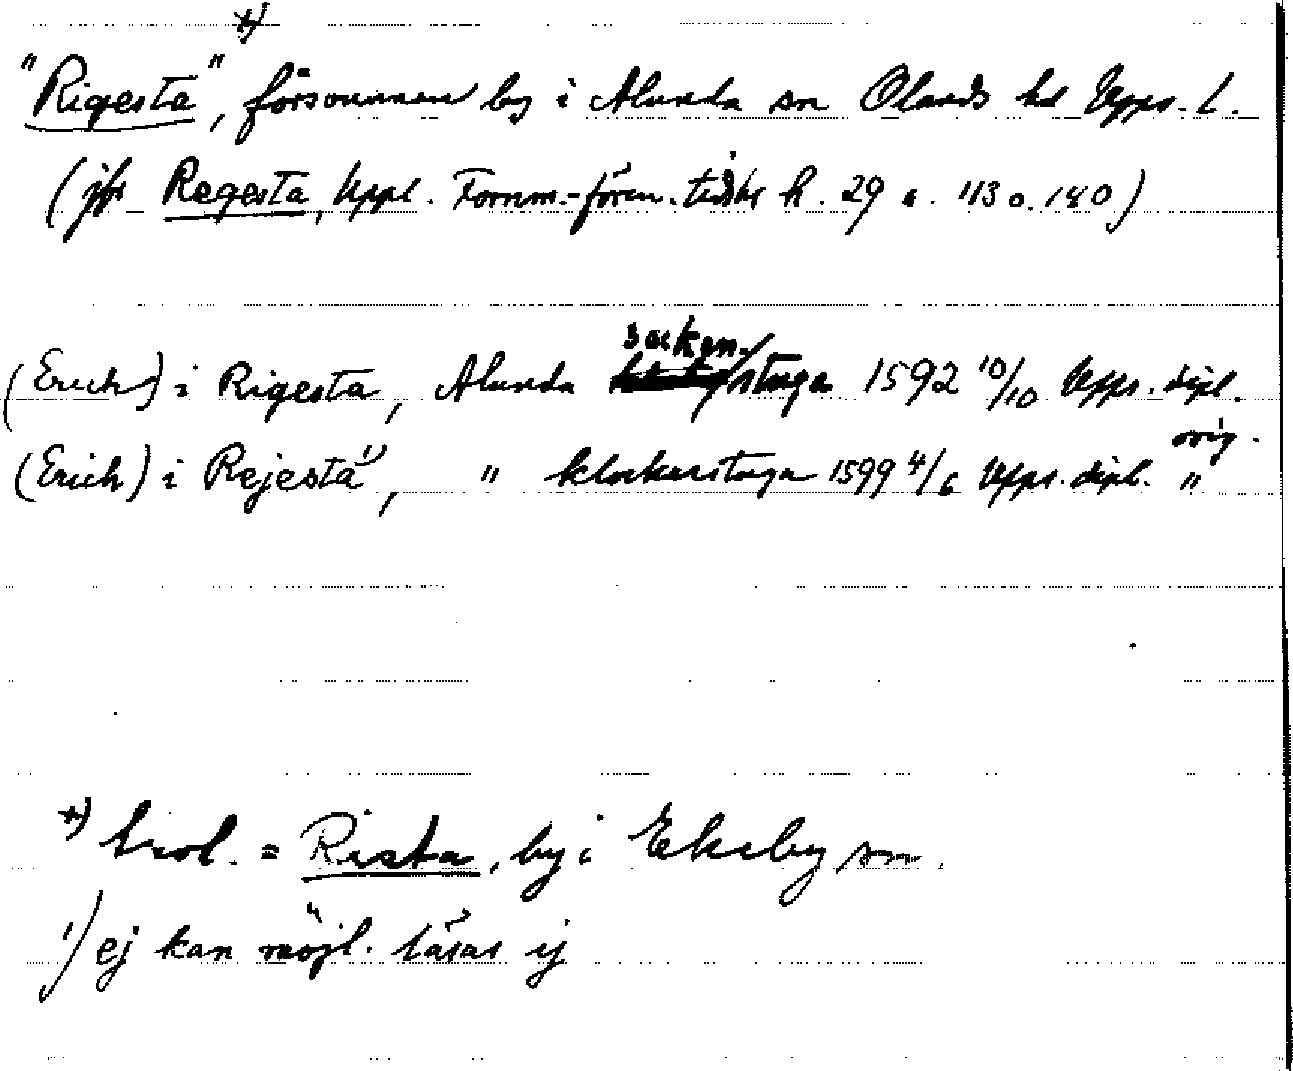 "Rigesta" +), försvunnen by i Alunda sn Olands hd Upps. l.
(jfr Regesta, Uppl. Fornm.-fören. tidskr h. 29 s. 113 o. 180)
(Erich) i Rigesta, Alunda socken/stuga 1592 10/10 Upps. dipl. orig.
(Erich) i Rejesta 1), " klockarstuga 1599 4/6 Upps. dipl. "
+) trol. = Rista, by i Ekeby sn.
1) ej kan möjl. läsas ij